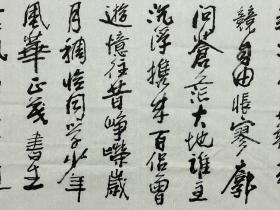 競自由悵寥廓
問蒼茫大地誰主
沉浮携来百侣曾
遊憶往昔崢嶸歲
月稠恰同学少年
風華正茂書生